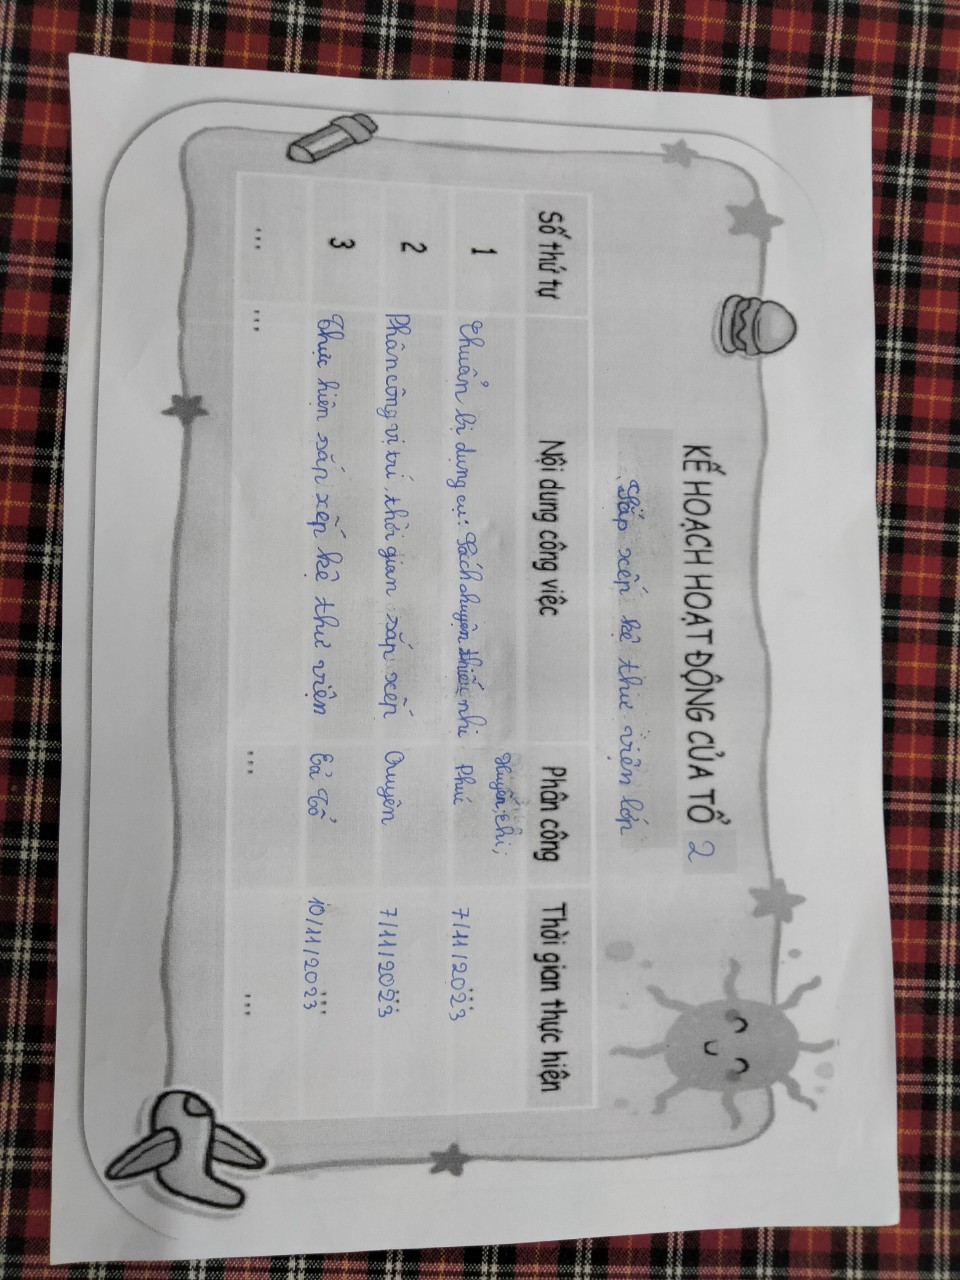 KẾ HOẠCH HOẠT ĐỘNG CỦA TỔ 2
Sắp xếp kệ thư viện lớp
Số thứ tự Nội dung công việc Phân công Thời gian thực hiện
Huyền, Chi,
1 Chuẩn bị dụng cụ: Sách chuyện thiếu nhi Phúc 7/11/2023
2 Phân công vị trí, thời gian sắp xếp Quyên 7/11/2023
3 Thực hiện sắp xếp kệ thư viện Cả tổ 10/11/2023
... ... ... ...